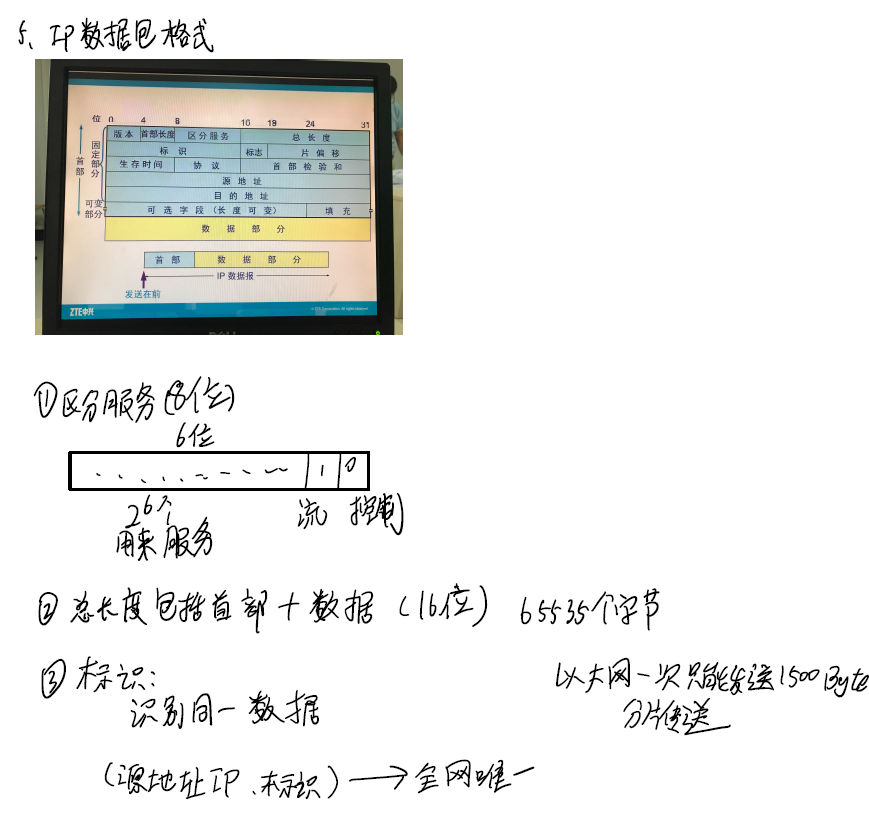 5、IP数据包格式
位 0 4 8 10 19 24 31
版本 首部长度 区分服务 总长度
标识 标志 片偏移
生存时间 协议 首部检验和
源地址
目的地址
可选字段（长度可变） 填充
数据部分
首部
固定部分
可变部分
首部 数据部分
IP 数据报
发送在前
ZTE中兴
①区分服务(8位)
6位
1 0
2⁶个 流 控制
用来服务
② 总长度包括首部＋数据（16位） 65535个字节
③ 标识：
识别同一数据
以太网一次只能发送1500Byte
分片传送
（源地址IP、标识）→全网唯一